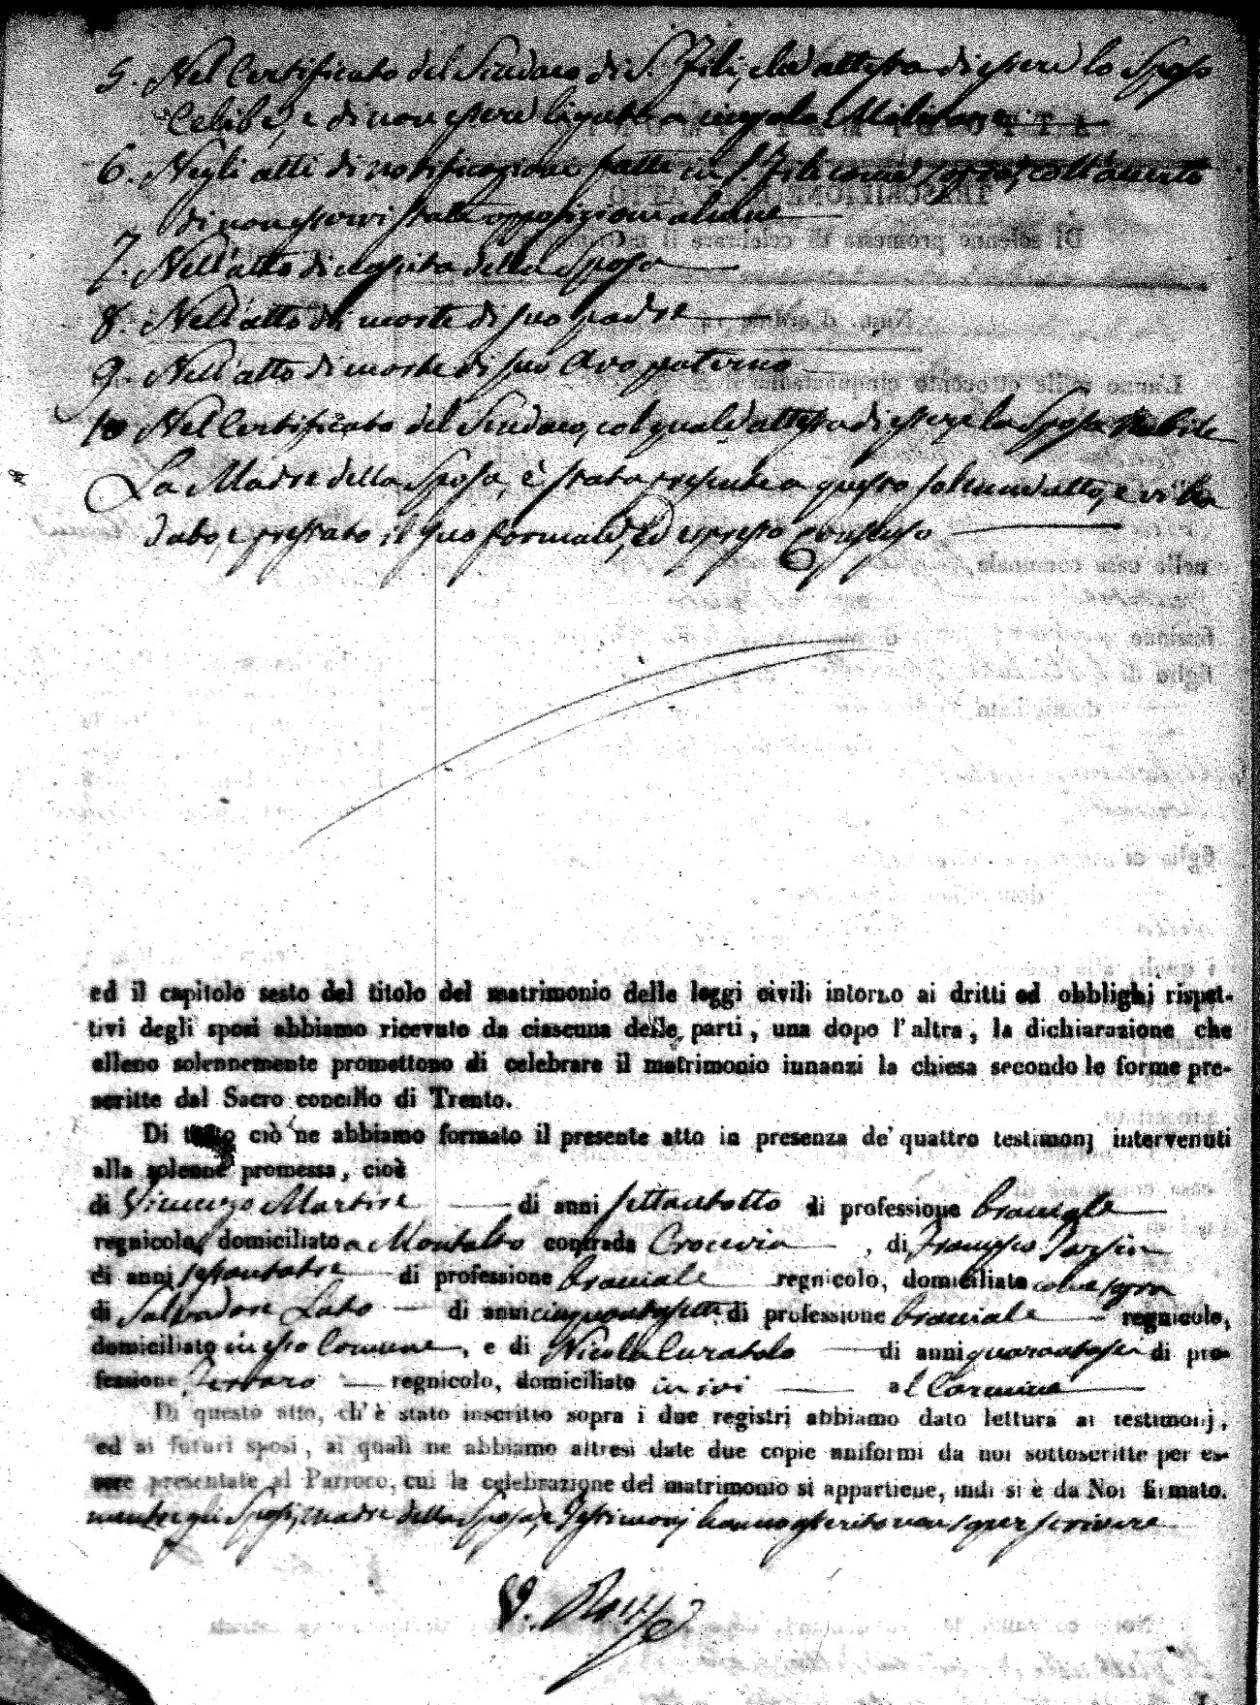 5. Nel Certificato del Sindaco di S. Fili, che attesta di essere lo Sposo
Celibe, e di non essere ligato a cingolo Militare
6. Negli atti di notificazione fatte in S. Fili come sopra, coll'attento
di non esservi state opposizioni alcune
7. Nell'atto di nascita della Sposa
8. Nell'atto di morte di suo padre
9. Nell'atto di morte di suo Avo paterno
10 Nel Certificato del Sindaco, col quale attesta di essere la Sposa Nubile
La Madre della Sposa, è stata presente a questo solenne atto, e vi ha
dato, e prestato il suo formale, ed espresso Consenso
ed il capitolo sesto del titolo del matrimonio delle leggi civili intorno ai dritti ed obblighi rispet-
tivi degli sposi abbiamo ricevuto da ciascuna delle parti, una dopo l'altra, la dichiarazione che
elleno solennemente promettono di celebrare il matrimonio innanzi la chiesa secondo le forme pre-
scritte dal Sacro concilio di Trento.
Di tutto ciò ne abbiamo formato il presente atto in presenza de' quattro testimonj intervenuti
alla solenne promessa, cioè
di Vincenzo Martire di anni settantotto di professione braciale
regnicolo, domiciliato a Montalto contrada Crocevia, di Francesco
di anni sessantatre di professione braciale regnicolo, domiciliato come sopra
di Salvadore Lato di anni cinquantasette di professione braciale regnicolo,
domiciliato in esso Comune, e di Nicola Curatolo di anni quarantasei di pro-
fessione Ferraro regnicolo, domiciliato in ivi al Carmine
Di questo atto, ch'è stato inscritto sopra i due registri abbiamo dato lettura ai testimonj,
ed ai futuri sposi, ai quali ne abbiamo altresì date due copie uniformi da noi sottoscritte per es-
sere presentate al Parroco, cui la celebrazione del matrimonio si appartiene, indi si è da Noi firmato.
mentre gli Sposi, madre della Sposa, e Testimonj hanno asserito non saper scrivere